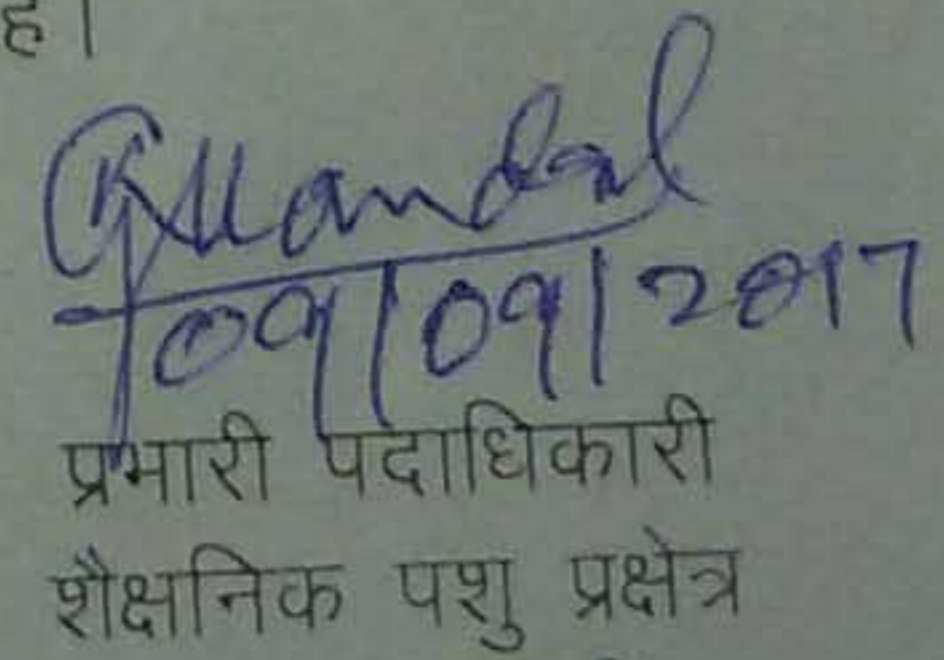 है।
Mandal
09/09/2017
प्रभारी पदाधिकारी
शैक्षनिक पशु प्रक्षेत्र